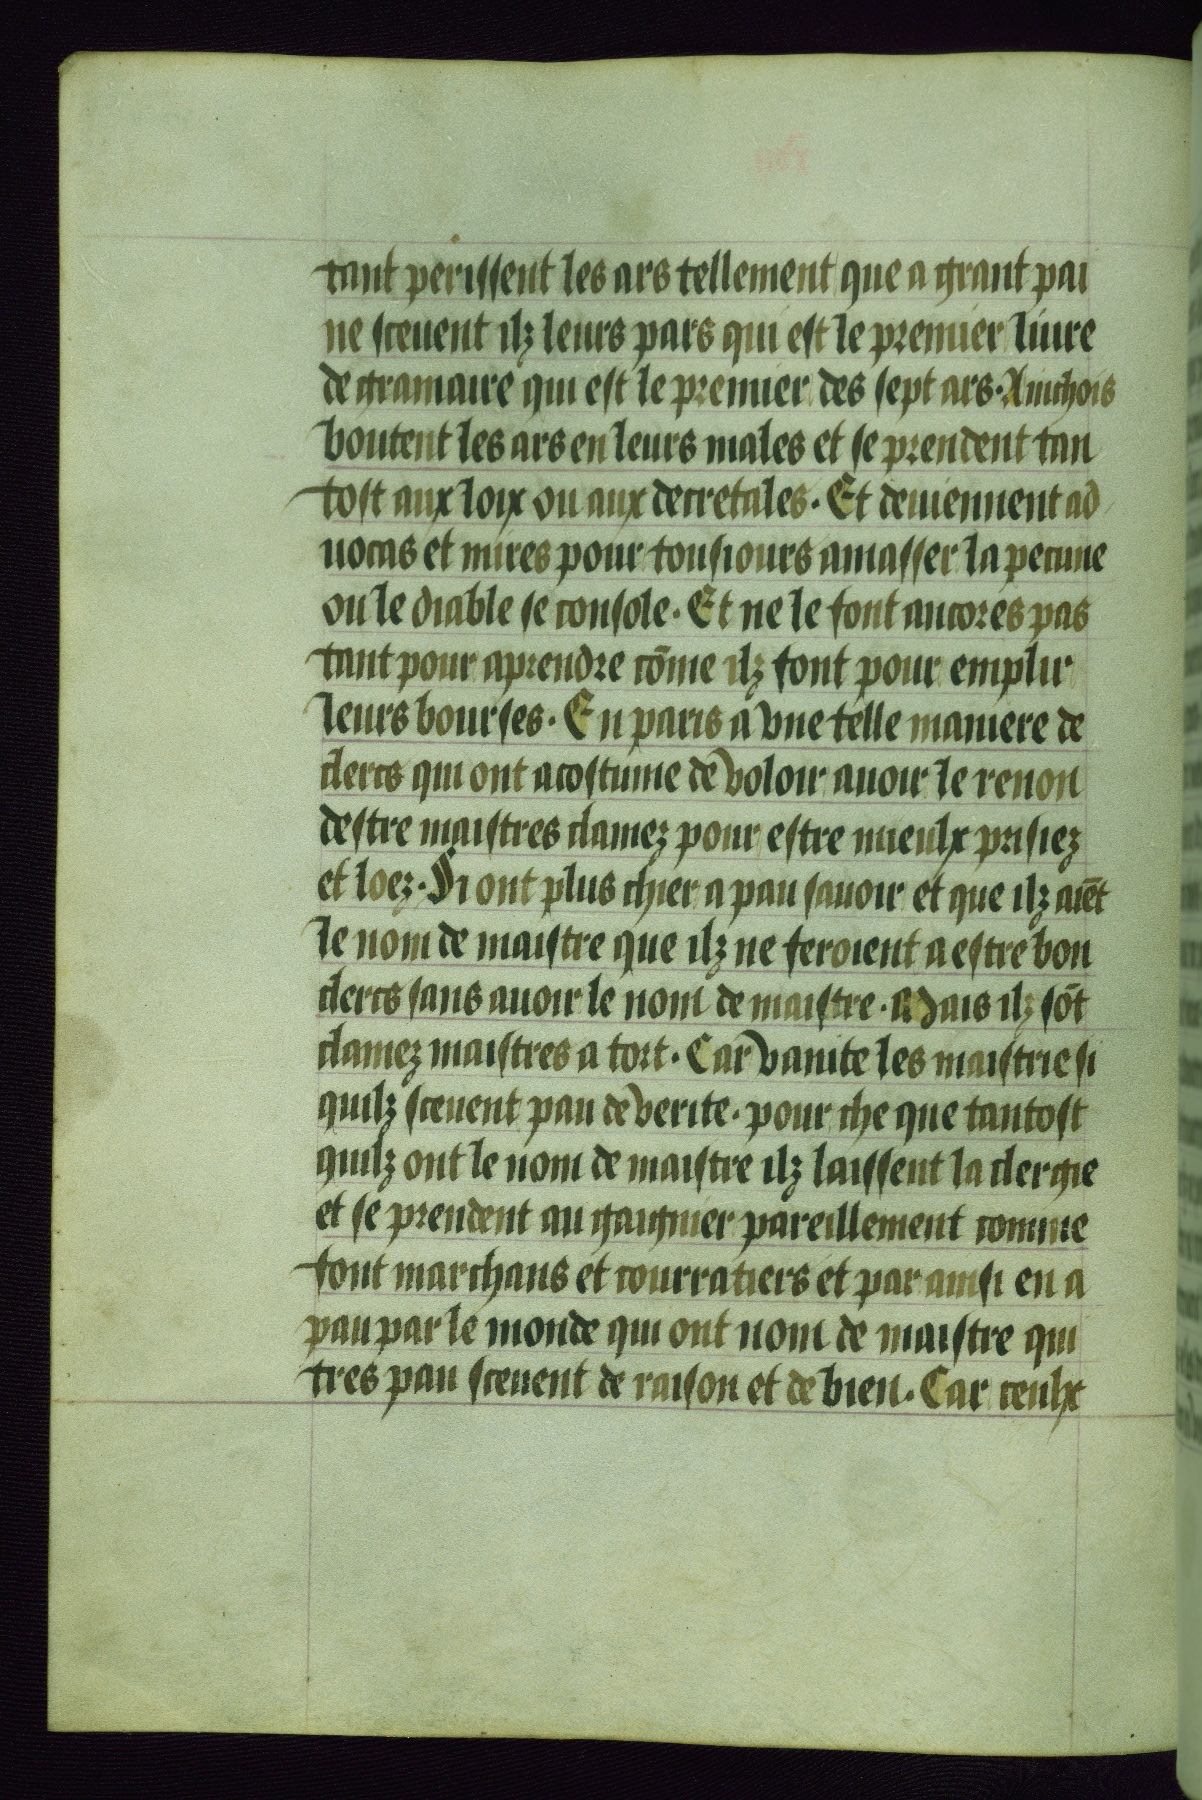 tant perissent les ars tellement que a grant pai
ne sceuent ilz leurs pars qui est le premier liure
de gramaire qui est le premier des sept ars. Ainchois
boutent les ars en leurs males et se prendent tan
tost aux loix ou aux decretales. Et deuiennent ad
uocas et mires pour tousiours amasser la pecune
ou le diable se console. Et ne le font ancores pas
tant pour aprendre cōme ilz font pour emplir
leurs bourses. En paris a vne telle maniere de
clercs qui ont acostume de voloir auoir le renon
destre maistres clamez pour estre mieulx prisiez
et loez. Si ont plus chier a pau sauoir et que ilz aiēt
le nom de maistre que ilz ne feroient a estre bon
clercs sans auoir le nom de maistre. Mais ilz sōt
clamez maistres a tort. Car vanite les maistrie si
quilz sceuent pau de verite. pour che que tantost
quilz ont le nom de maistre ilz laissent la clergie
et se prendent au gaignier pareillement comme
font marchans et courratiers et par ainsi en a
pau par le monde qui ont nom de maistre qui
tres pau sceuent de raison et de bien. Car ceulx